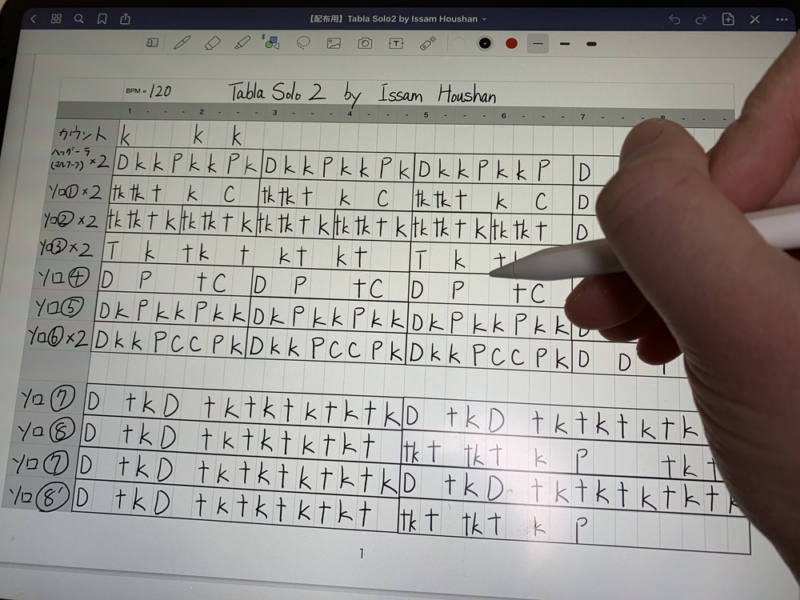 【配布用】Tabla Solo2 by Issam Houshan
BPM= 120 Tabla Solo 2 by Issam Houshan
1 - - - 2 - - - 3 - - - 4 - - - 5 - - - 6 - - - 7 - - - 8
カウント k k k
×2 D k k P k k P k D k k P k k P k D k k P k k P D
ソロ① ×2 tk tk t k C tk tk t k C tk tk t k C D
ソロ② ×2 tk tk t k tk tk t k tk tk t k tk tk t k tk tk t k tk tk t D
ソロ③ ×2 T k tk t kt kt T k
ソロ④ D P t C D P t C D P t C
ソロ⑤ D k P k k P k k D k P k k P k k D k P k k P k k D
ソロ⑥ ×2 D k k P C C P k D k k P C C P k D k k P C C P k D D
ソロ⑦ D t k D t k t k t k t k t k D t k D t k t k t k t k
ソロ⑧ D t k D t k t k t k t k t tk t tk t k P t k t
ソロ⑦ D t k D t k t k t k t k t k D t k D t k t k t k t k t k
ソロ⑧' D t k D t k t k t k t k t tk t tk t k P
1